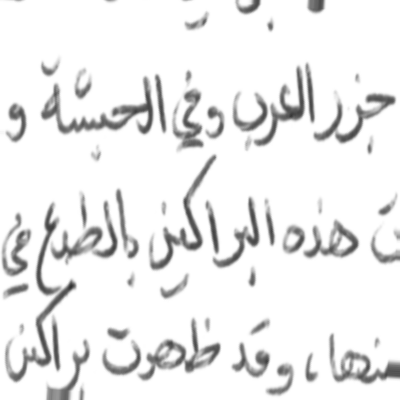 جزر العرب وفي الحبشة و
هذه البراكين بالطدع في
منها، وقد ظهرت براكين